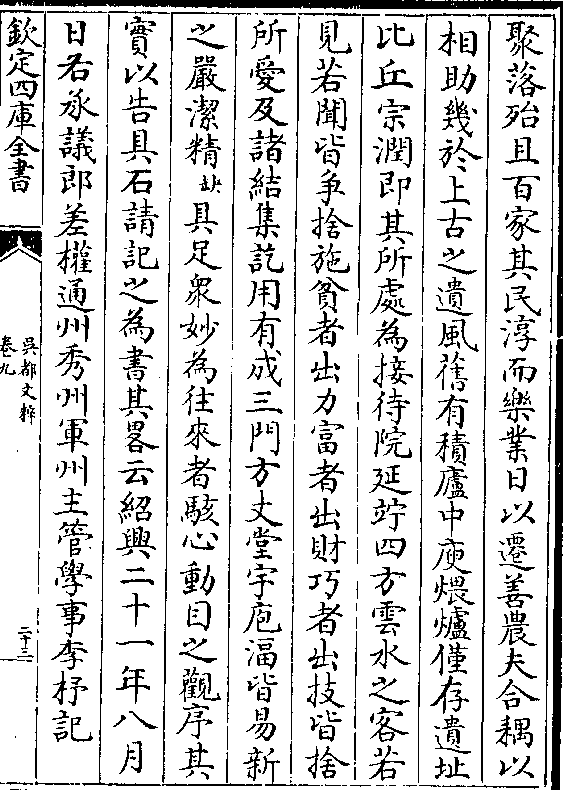 聚落殆且百家其民淳而樂業日以遷善農夫合耦以
相助幾於上古之遺風舊有積廬中庾煨爐僅存遺址
比丘宗潤即其所處為接待院延竚四方雲水之客若
見若聞皆爭捨施貧者出力富者出財巧者出技皆捨
所愛及諸結集訖用有成三門方丈堂宇庖湢皆易新
之嚴潔精缺具足衆妙為往來者駭心動目之觀序其
實以告具石請記之為書其畧云紹興二十一年八月
日右承議郎差權通州秀州軍州主管學事李杼記
欽定四庫全書
吳都文粹
卷九
二十三